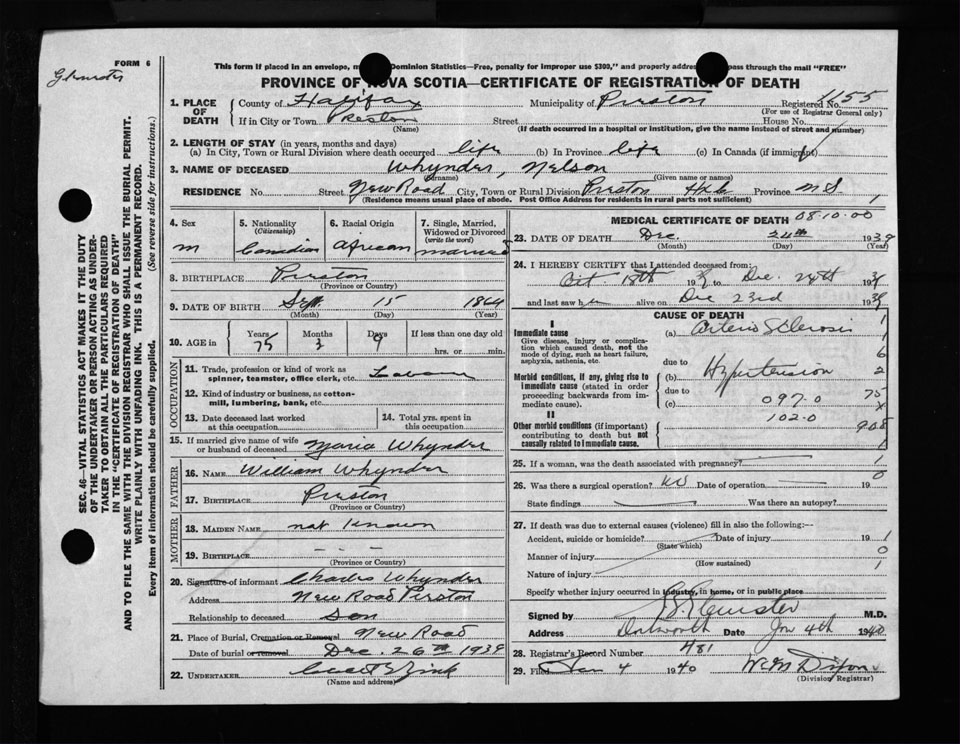 FORM 6
This form if placed in an envelope, m Dominion Statistics—Free, penalty for improper use $300," and properly address pass through the mail "FREE"
PROVINCE OF NOVA SCOTIA—CERTIFICATE OF REGISTRATION OF DEATH
1. PLACE OF DEATH
County of Halifax Municipality of Preston Registered No. 1155
(For use of Registrar General only)
If in City or Town Preston Street House No.
(Name) (If death occurred in a hospital or institution, give the name instead of street and number)
2. LENGTH OF STAY (in years, months and days)
(a) In City, Town or Rural Division where death occurred life (b) In Province life (c) In Canada (if immigrant)
3. NAME OF DECEASED Whynder, Nelson
(Surname) (Given name or names)
RESIDENCE No. Street New Road City, Town or Rural Division Preston Hfx Province N S
(Residence means usual place of abode. Post Office Address for residents in rural parts not sufficient) 1
4. Sex
m
5. Nationality
(Citizenship)
Canadian
6. Racial Origin
African
7. Single, Married, Widowed or Divorced
(write the word)
married
8. BIRTHPLACE Preston
(Province or Country)
9. DATE OF BIRTH Sept 15 1864
(Month) (Day) (Year)
10. AGE in
Years 75
Months 3
Days 9
If less than one day old
hrs. or min.
OCCUPATION
11. Trade, profession or kind of work as spinner, teamster, office clerk, etc.
12. Kind of industry or business, as cotton-mill, lumbering, bank, etc.
13. Date deceased last worked at this occupation
14. Total yrs. spent in this occupation
15. If married give name of wife or husband of deceased Maria Whynder
FATHER
16. NAME William Whynder
17. BIRTHPLACE Preston
(Province or Country)
MOTHER
18. MAIDEN NAME not known
19. BIRTHPLACE — —
(Province or Country)
20. Signature of informant Charles Whynder
Address New Road Preston
Relationship to deceased Son
21. Place of Burial, Cremation or Removal New Road
Date of burial or removal Dec. 26th 1939
22. UNDERTAKER Zink
(Name and address)
MEDICAL CERTIFICATE OF DEATH 08.10.00
23. DATE OF DEATH Dec. 24th 1939
(Month) (Day)
24. I HEREBY CERTIFY that I attended deceased from:
Oct. 18th 1939 to Dec. 24th 1939
and last saw h alive on Dec 23rd 1939
CAUSE OF DEATH
I
Immediate cause
Give disease, injury or complication which caused death, not the mode of dying, such as heart failure, asphyxia, asthenia, etc.
(a) Arterio Sclerosis
due to
Morbid conditions, if any, giving rise to immediate cause (stated in order proceeding backwards from immediate cause).
(b) Hypertension
due to
(c) 097.0
102.0
II
Other morbid conditions (if important) contributing to death but not causally related to immediate cause.
1
1
6
2
75
X
908
1
25. If a woman, was the death associated with pregnancy? 1
26. Was there a surgical operation? no Date of operation 19 0
State findings Was there an autopsy?
27. If death was due to external causes (violence) fill in also the following:—
Accident, suicide or homicide? Date of injury 19 1
(State which)
Manner of injury 0
(How sustained)
Nature of injury 1
Specify whether injury occurred in industry, in home, or in public place
Signed by M.D.
Address Dartmouth Date Jan 4th 1940
28. Registrar's Record Number 481
29. Filed Jan 4 1940 W. Dixon
(Division Registrar)
SEC. 46—VITAL STATISTICS ACT MAKES IT THE DUTY
OF THE UNDERTAKER OR PERSON ACTING AS UNDER-
TAKER TO OBTAIN ALL THE PARTICULARS REQUIRED
IN THE "CERTIFICATE OF REGISTRATION OF DEATH"
AND TO FILE THE SAME WITH THE DIVISION REGISTRAR WHO SHALL ISSUE THE BURIAL PERMIT.
WRITE PLAINLY WITH UNFADING INK. THIS IS A PERMANENT RECORD.
Every item of information should be carefully supplied. (See reverse side for instructions.)